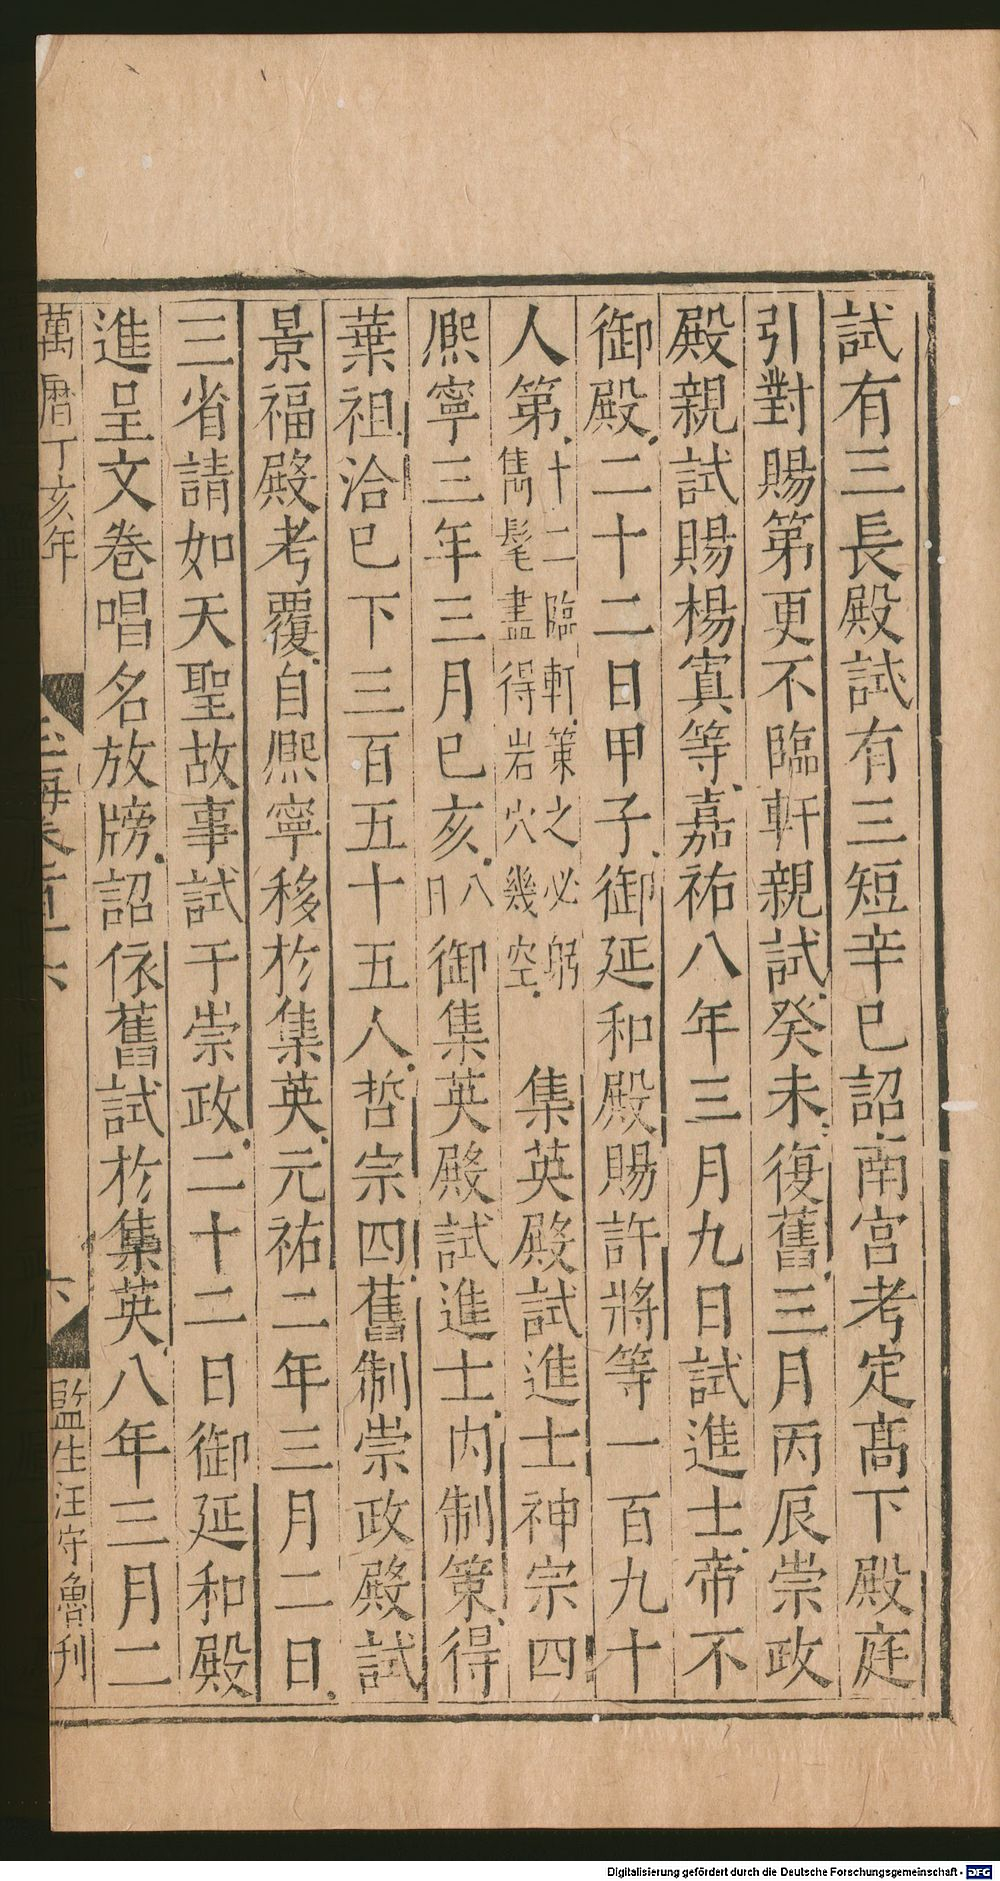 試有三長殿試有三短辛巳詔南宮考定髙下殿庭
引對賜第更不臨軒親試癸未復舊三月丙辰崇政
殿親試賜楊寘等嘉祐八年三月九日試進士帝不
御殿二十二日甲子御延和殿賜許將等一百九十
人第十二臨軒策之必躬
雋髦盡得岩穴幾空
集英殿試進士神宗四
熈寧三年三月巳亥八日御集英殿試進士内制策得
葉祖洽巳下三百五十五人哲宗四舊制崇政殿試
景福殿考覆自熈寧移於集英元祐二年三月二日
三省請如天聖故事試于崇政二十二日御延和殿
進呈文卷唱名放牓詔依舊試於集英八年三月二
萬曆丁亥年
六
監生汪守魯刊
Digitalisierung gefördert durch die Deutsche Forschungsgemeinschaft - DFG